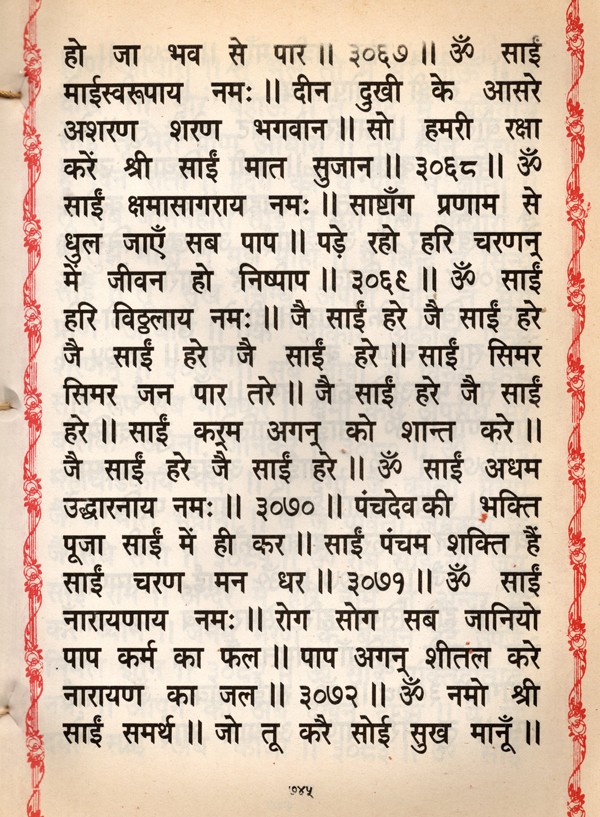 हो जा भव से पार ।। ३०६७ ।। ॐ साईं
माईस्वरूपाय नमः ।। दीन दुखी के आसरे
अशरण शरण भगवान ।। सो हमरी रक्षा
करें श्री साईं मात सुजान ।। ३०६८ ।। ॐ
साईं क्षमासागराय नमः ।। साष्टाँग प्रणाम से
धुल जाएँ सब पाप ।। पड़े रहो हरि चरणन्
में जीवन हो निष्पाप ।। ३०६९ ।। ॐ साईं
हरि विठ्ठलाय नमः ।। जै साईं हरे जै साईं हरे
जै साईं हरे जै साईं हरे ।। साईं सिमर
सिमर जन पार तरे ।। जै साईं हरे जै साईं
हरे ।। साईं कर्म अगन् को शान्त करे ।।
जै साईं हरे जै साईं हरे ।। ॐ साईं अधम
उद्धारनाय नमः ।। ३०७० ।। पंचदेव की भक्ति
पूजा साईं में ही कर ।। साईं पंचम शक्ति हैं
साईं चरण मन धर ।। ३०७१ ।। ॐ साईं
नारायणाय नमः ।। रोग सोग सब जानियो
पाप कर्म का फल ।। पाप अगन् शीतल करे
नारायण का जल ।। ३०७२ ।। ॐ नमो श्री
साईं समर्थ ।। जो तू करै सोई सुख मानूँ ।।
७४५